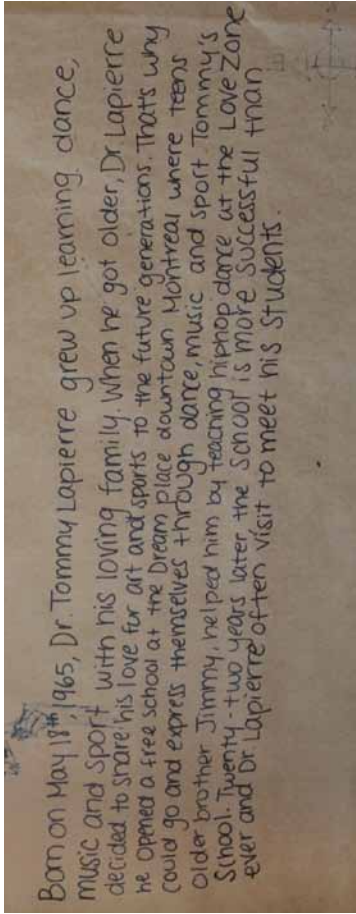 Born on May 18th, 1965, Dr. Tommy Lapierre grew up learning dance,
music and sport with his loving family. When he got older, Dr. Lapierre
decided to share his love for art and sports to the future generations. That's why
he opened a free school at the Dream place downtown Montreal where teens
could go and express themselves through dance, music and sport. Tommy's
older brother Jimmy, helped him by teaching hiphop dance at the Love Zone
School. Twenty-two years later, the school is more successful than
ever and Dr. Lapierre often visit to meet his students.